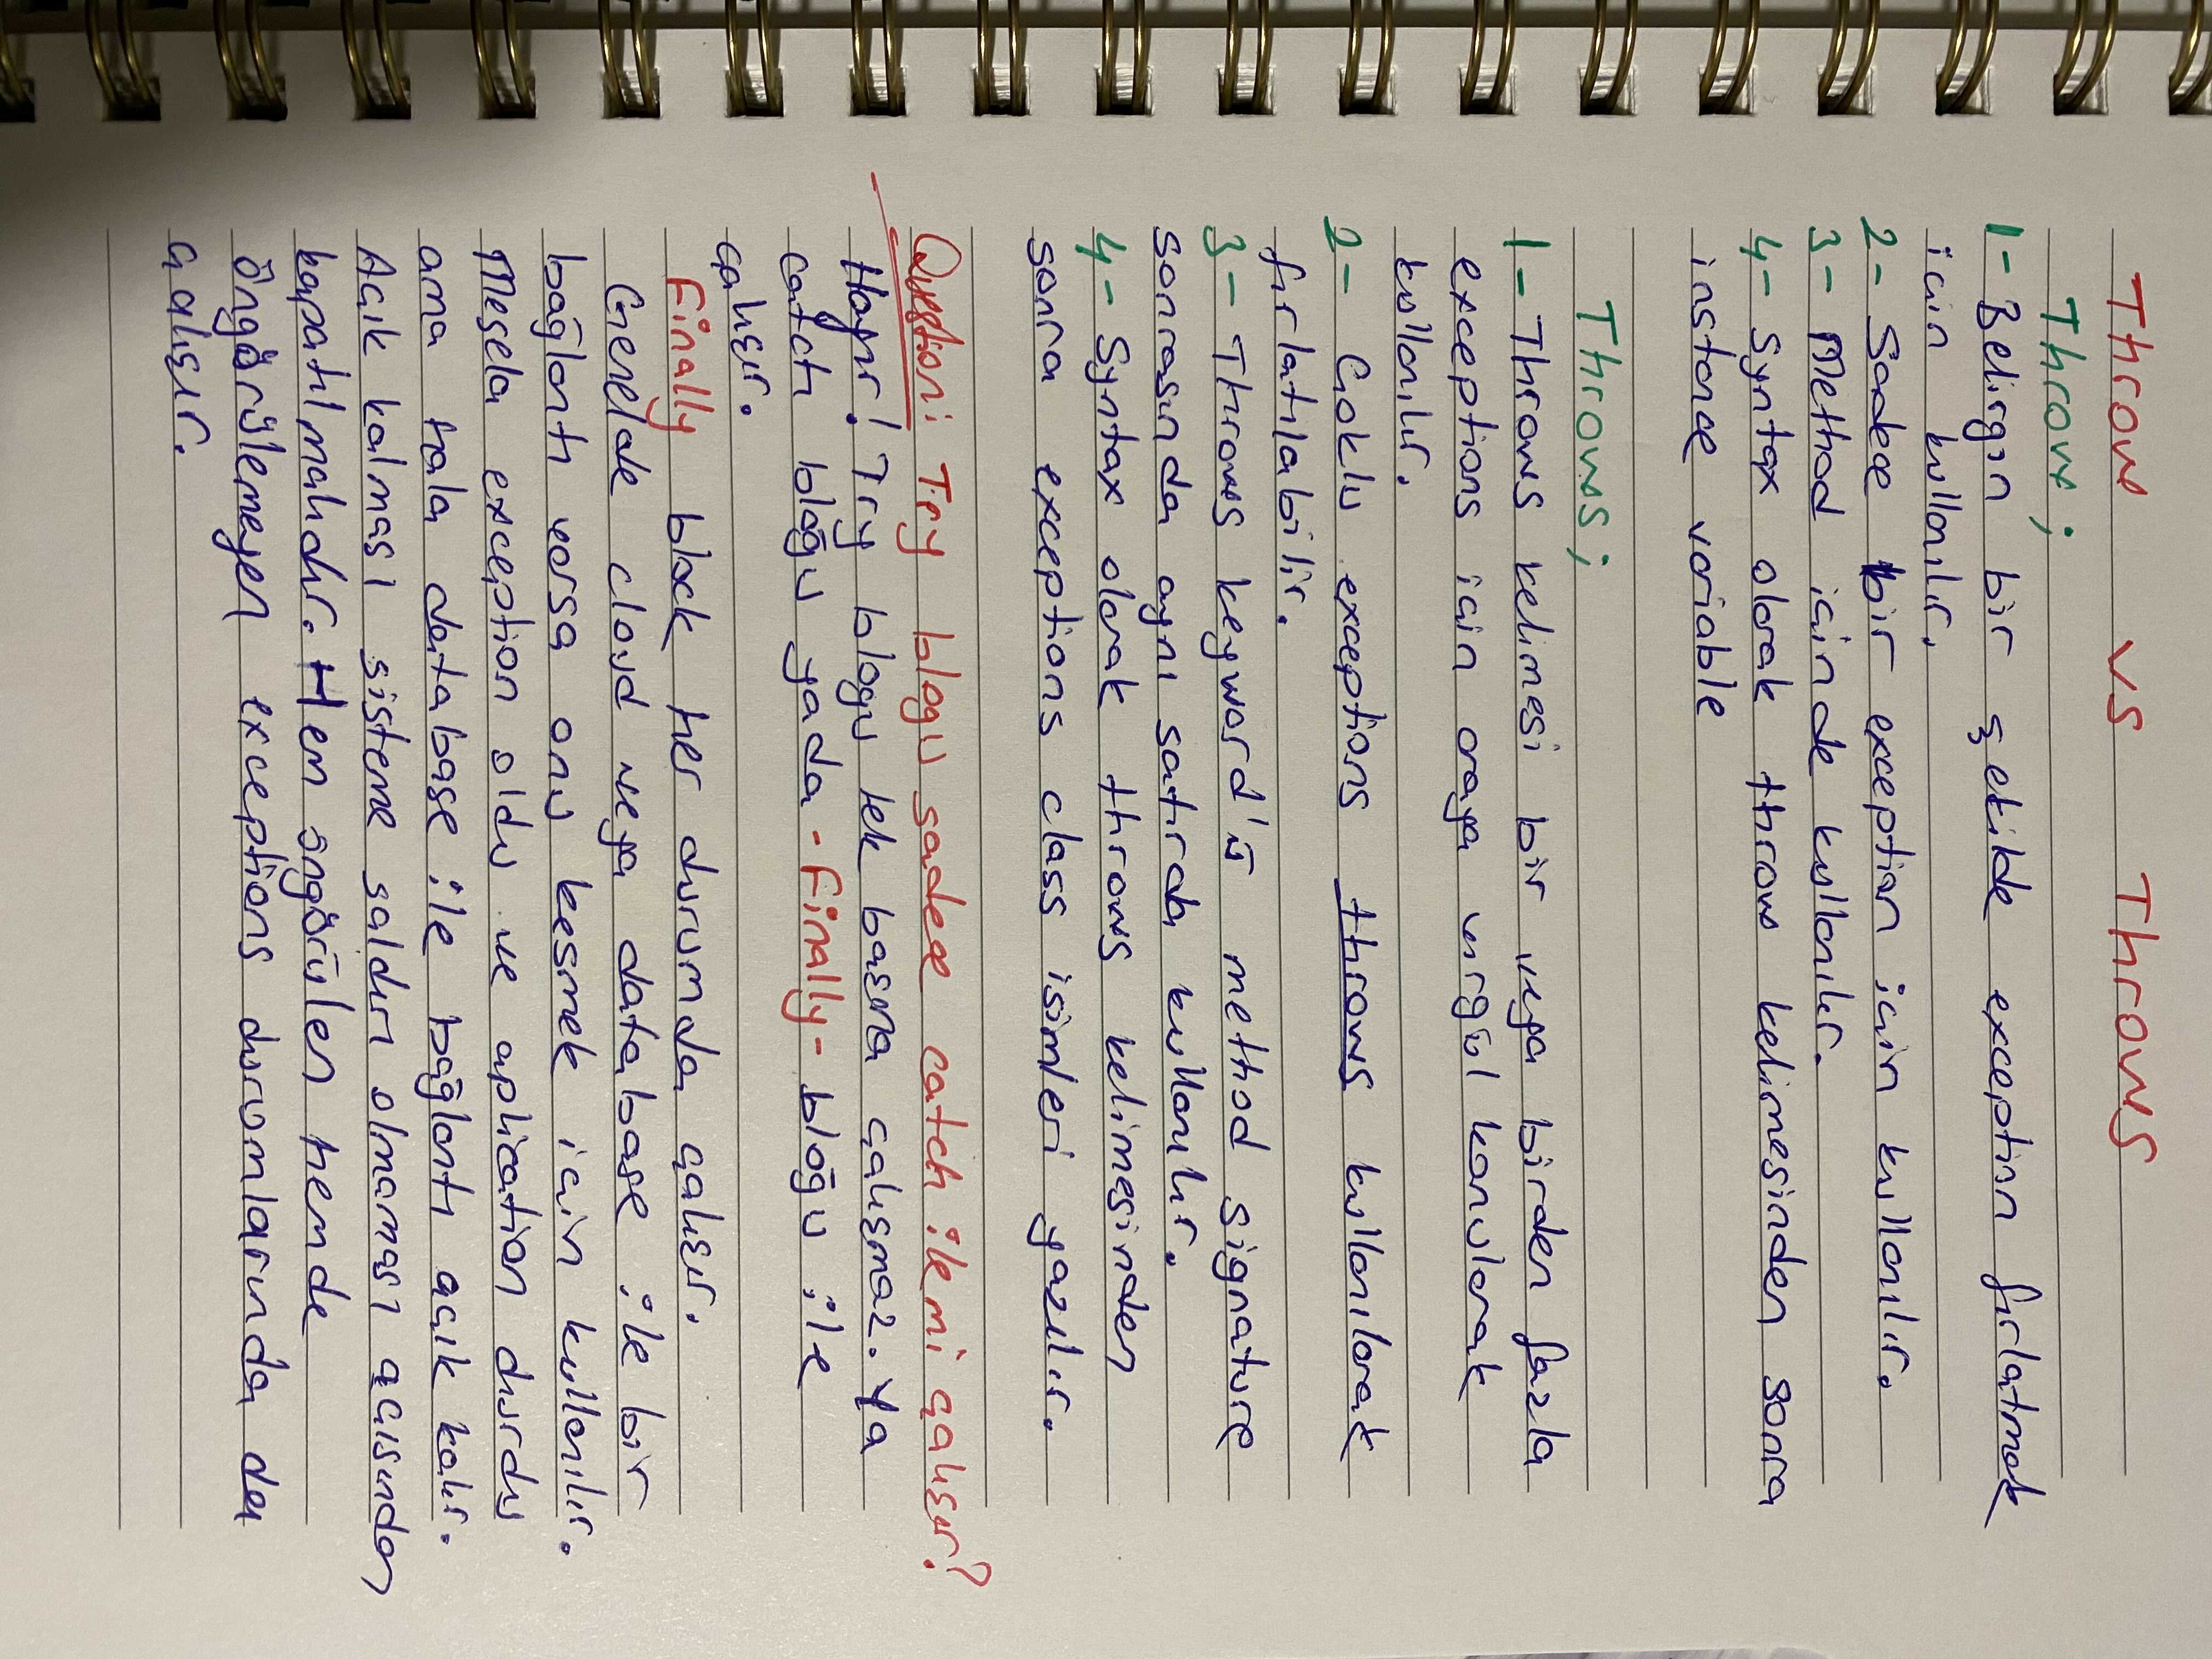 Throw vs Throws
Throw;
1- Belirgin bir şekilde exception fırlatmak
için kullanılır.
2- Sadece bir exception için kullanılır.
3- Method içinde kullanılır.
4- Syntax olarak throw kelimesinden sonra
instance variable
Throws;
1- Throws kelimesi bir veya birden fazla
exceptions için araya virgül konularak
kullanılır.
2- Çoklu exceptions throws kullanılarak
fırlatılabilir.
3- Throws keyword'ü method signature
sonrasında aynı satırda kullanılır.
4- Syntax olarak throws kelimesinden
sonra exceptions class isimleri yazılır.
Question: Try blogu sadece catch ile mi çalışır?
Hayır! Try blogu tek başına çalışmaz. Ya
catch bloğu yada -Finally- bloğu ile
çalışır.
Finally block her durumda çalışır.
Genelde cloud veya database ile bir
bağlantı varsa onu kesmek için kullanılır.
Mesela exception oldu ve aplication durdu
ama hala database ile bağlantı açık kalır.
Açık kalması sisteme saldırı olmaması açısından
kapatılmalıdır. Hem öngörülen hemde
öngörülemeyen exceptions durumlarında da
çalışır.